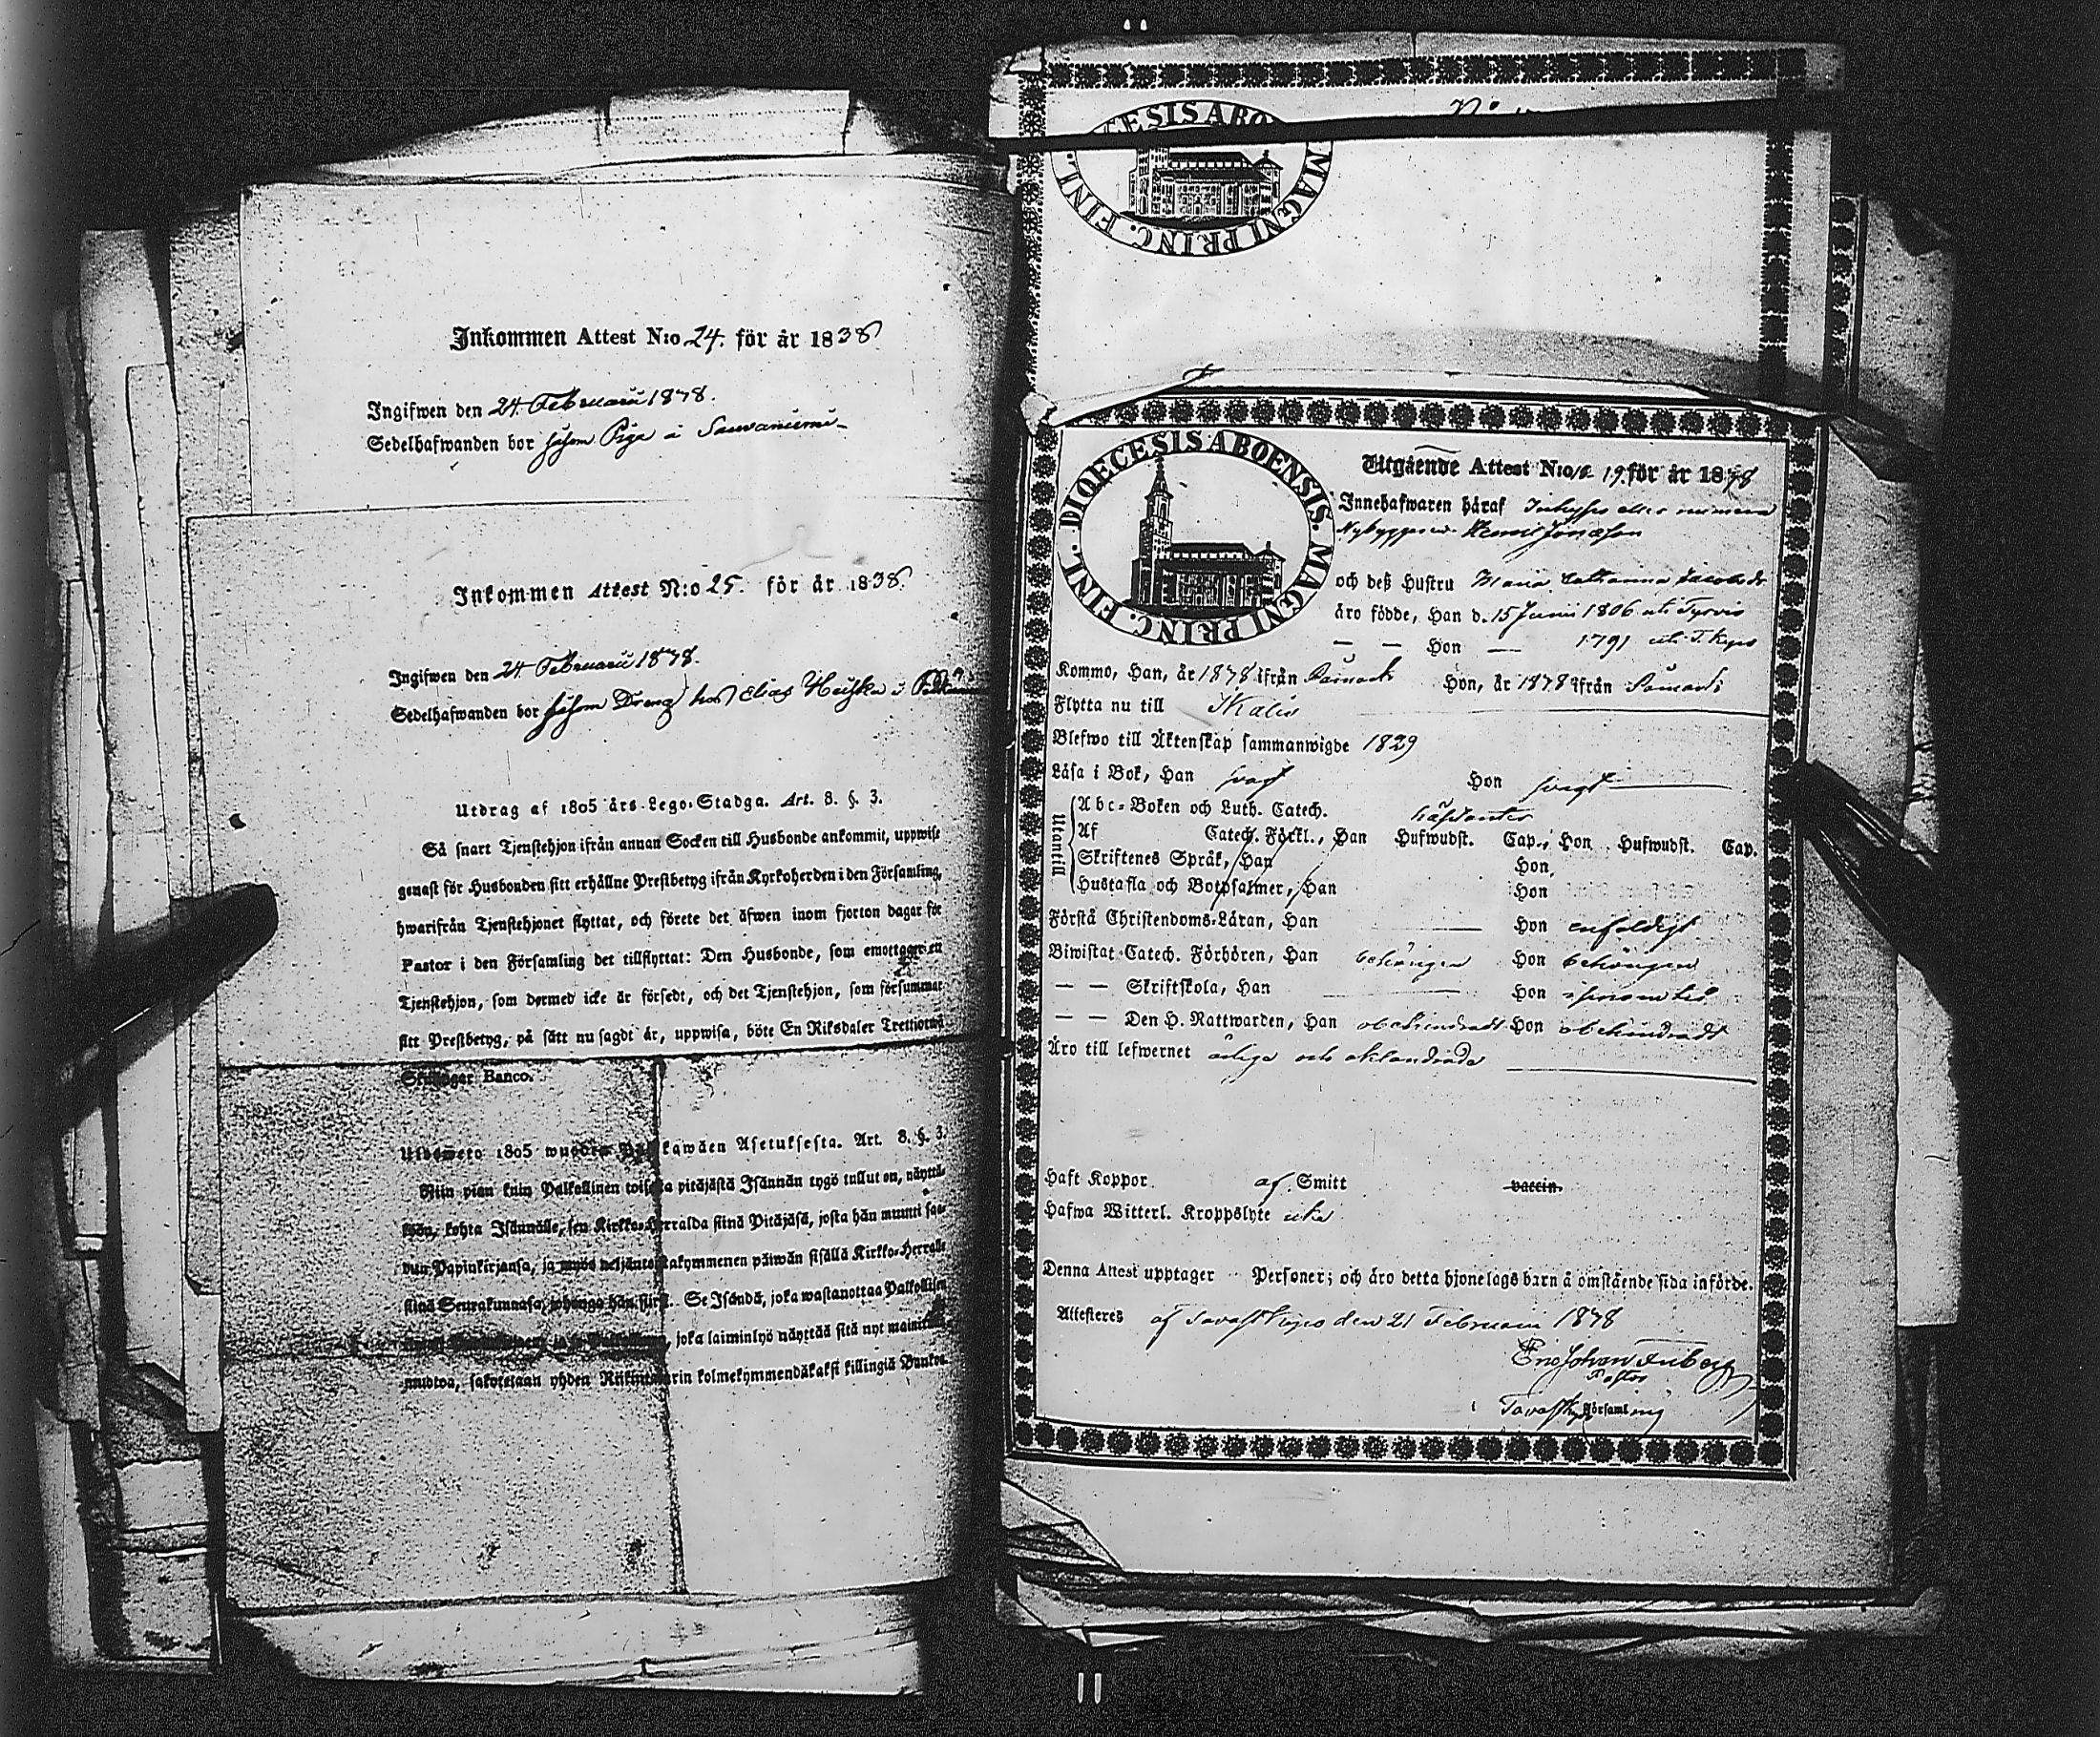 Inkommen Attest N:o 24. för år 1838
Ingifwen den 24 Februarii 1838.
Sedelhafwanden bor såsom Piga å
Inkommen Attest N:o 25. för år 1838.
Ingifwen den 24 Februarii 1838.
Sedelhafwanden bor såsom Dreng hos Elias Heiska i
Utdrag af 1805 års Lego-Stadga. Art. 8. §. 3.
Så snart Tjenstehjon ifrån annan Socken till Husbonde ankommit, uppwise
genast för Husbonden sitt erhållne Prestbetyg ifrån Kyrkoherden i den Församling,
hwarifrån Tjenstehjonet flyttat, och förete det äfwen inom fjorton dagar för
Pastor i den Församling det tillflyttat: Den Husbonde, som emottager en
Tjenstehjon, som dermed icke är försedt, och det Tjenstehjon, som försummar
sitt Prestbetyg, på sätt nu sagdt är, uppwisa, böte En Riksdaler Trettiotwå
Skillingar Banco.
Ulosweto 1805 wuoden Palkkawäen Asetuksesta. Art. 8. §. 3.
Niin pian kuin Palkollinen toisesta pitäjästä Isännän tygö tullut on, näyttä-
köön, kohta Isännälle, sen Kirkko-Herralda siinä Pitäjäsä, josta hän muutti saa-
dun Papinkirjansa, ja myös neljäntoistakymmenen päiwän sisällä Kirkko-Herralle
siinä Seurakunnasa, johonga hän siirsi. Se Isändä, joka wastanottaa Palkollisen
joka laiminlyö näyttää sitä nyt mainitulla
muotoa, sakotetaan yhden Riikintalarin kolmekymmendäkaksi killingiä Bankos.
DIOECESIS ABO MAGNI PRINC. FINL.
DIOECESIS ABOENSIS. MAGNI PRINC. FINL.
Utgående Attest N:o 19. för år 1838
Innehafwaren häraf Inhyses eller numera
Nybyggaren Henric Jonasson
och deß Hustru Maria Catharina Jacobsdr
äro födde, Han d. 15 Junii 1806 uti Tyrvis
— — Hon — 1791 uti T.kyro
Kommo, Han, år 1838 ifrån Hon, år 1838 ifrån
Flytta nu till Ikalis
Blefwo till Äktenskap sammanwigde 1829
Läsa i Bok, Han svagt Hon svagt
Utantill
Abc-Boken och Luth. Catech.
Af Catech. Förkl., Han Hufwudst. Cap., Hon Hufwudst. Cap.
Skriftenes Språk, Han Hon
Hustafla och Botpsalmer, Han Hon
Förstå Christendoms-Läran, Han — Hon enfaldigt
Biwistat Catech. Förhören, Han behörigen Hon behörigen
— — Skriftskola, Han — Hon
— — Den H. Nattwarden, Han obehindradt Hon obehindradt
Äro till lefwernet ärliga och oklandrade
Haft Koppor af Smitt vaccin.
Hafwa Witterl. Kroppslyte icke
Denna Attest upptager Personer; och äro detta hjonelags barn å omstående sida införde.
Attesteres af Tavastkyro den 21 Februarii 1838
Eric Johan
Pastor
i Tavastkyro Församling